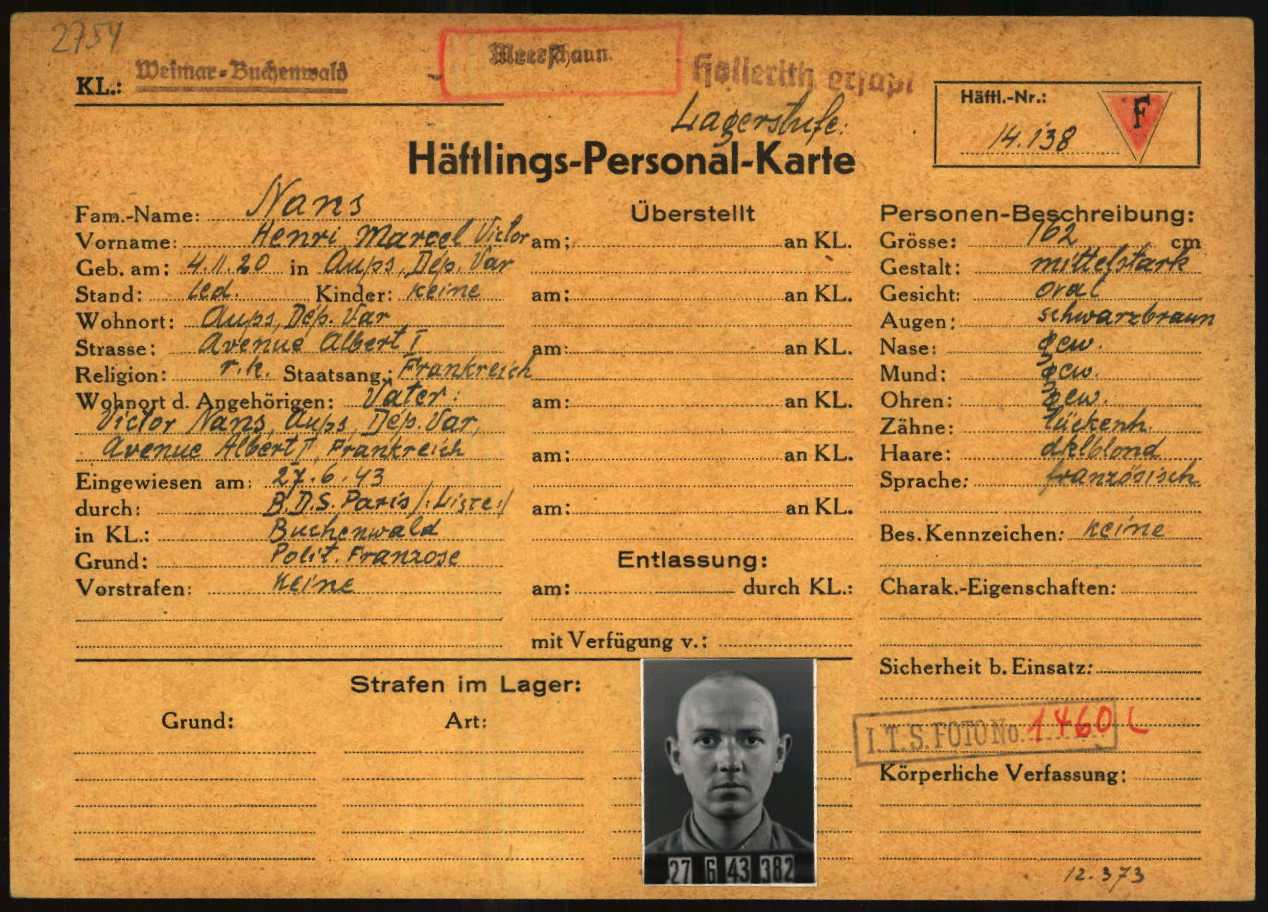 2754
KL.: Weimar-Buchenwald
Hollerith erfaßt
Lagerstufe:
Häftl.-Nr.: 14.138 F
Häftlings-Personal-Karte
Fam.-Name: Nans
Vorname: Henri Marcel Victor
Geb. am: 4.11.20 in Aups, Dép. Var
Stand: led. Kinder: keine
Wohnort: Aups, Dép. Var
Strasse: Avenue Albert I
Religion: r.k. Staatsang.: Frankreich
Wohnort d. Angehörigen: Vater:
Victor Nans, Aups, Dép. Var,
Avenue Albert I, Frankreich
Eingewiesen am: 27.6.43
durch: B.D.S. Paris /:Liste:/
in KL.: Buchenwald
Grund: Polit. Franzose
Vorstrafen: keine
Überstellt
am: an KL.
am: an KL.
am: an KL.
am: an KL.
am: an KL.
am: an KL.
Entlassung:
am: durch KL.:
mit Verfügung v.:
Personen-Beschreibung:
Grösse: 162 cm
Gestalt: mittelstark
Gesicht: oval
Augen: schwarzbraun
Nase: gew.
Mund: gew.
Ohren: gew.
Zähne: lückenh.
Haare: dklblond
Sprache: französisch
Bes. Kennzeichen: keine
Charak.-Eigenschaften:
Sicherheit b. Einsatz:
I.T.S. FOTO No. 1460
Körperliche Verfassung:
Strafen im Lager:
Grund: Art:
27 6 43 382
12.373